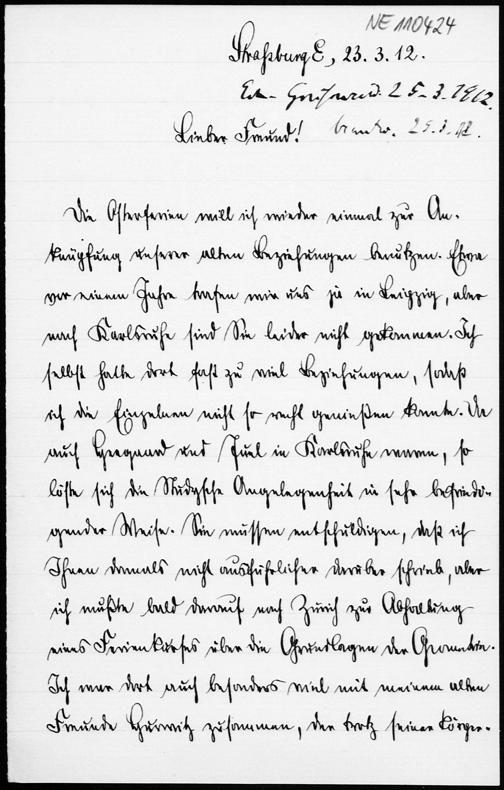 NE 110424
Straßburg E, 23.3.12.
25.3.1912.
25.3.12.
Lieber Freund!
Die Osterferien will ich wieder einmal zur An-
knüpfung unserer alten Beziehungen benutzen. Etwa
vor einem Jahre trafen wir uns ja in Leipzig, aber
nach Karlsruhe sind Sie leider nicht gekommen. Ich
selbst hatte dort fast zu viel Beziehungen, sodaß
ich die Einzelnen nicht so recht genießen konnte. Da
auch Heegaard und Juel in Karlsruhe waren, so
löste sich die Studysche Angelegenheit in sehr befriedi-
gender Weise. Sie müssen entschuldigen, daß ich
Ihnen damals nicht ausführlicher darüber schrieb, aber
ich mußte bald darauf nach Zürich zur Abhaltung
eines Ferienkurses über die Grundlagen der Geometrie.
Ich war dort auch besonders viel mit meinem alten
Freunde Hurwitz zusammen, der trotz seiner körper-